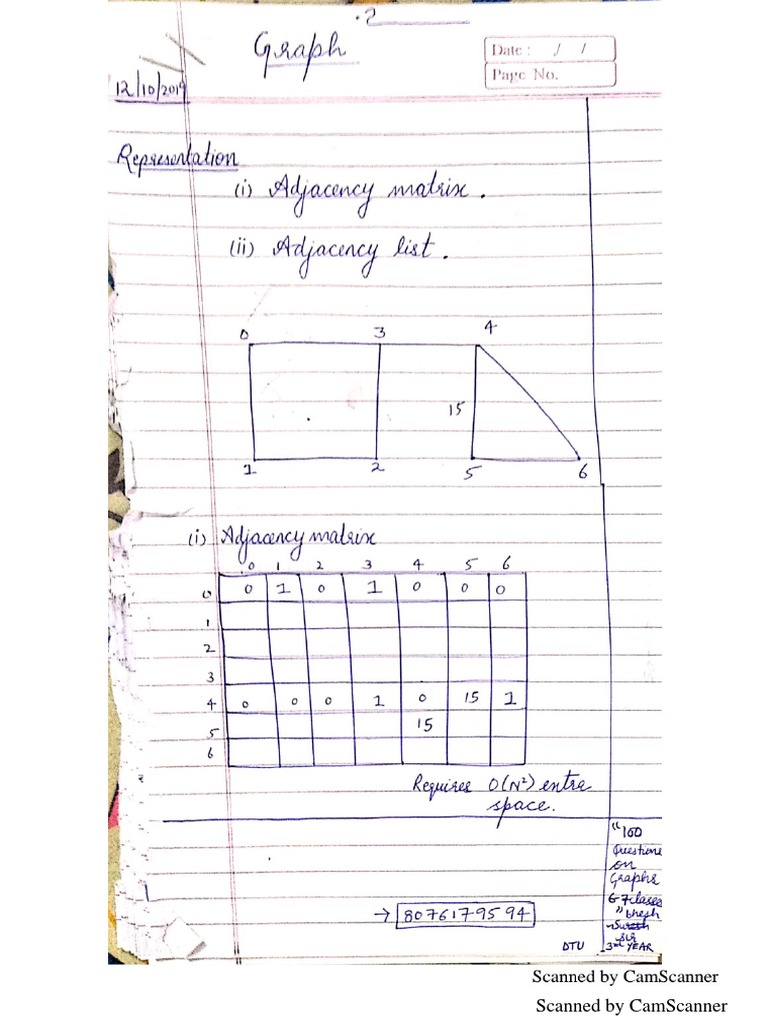 .2
Graph
Date : / /
Page No.
12/10/2019
Representation
(i) Adjacency matrix.
(ii) Adjacency list.
0 3 4
15
1 2 5 6
(i) Adjacency matrix
0 1 2 3 4 5 6
0 0 1 0 1 0 0 0
1
2
3
4 0 0 0 1 0 15 1
5 15
6
Requires O(N²) entra
space.
"100
Questions
on
Graphs
6-7 classes
"
Suresh
sir
→ 8076179594
DTU 3rd YEAR
Scanned by CamScanner
Scanned by CamScanner